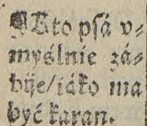 ¶Kto psá v⸗
myślnie zá⸗
bije/iáko ma
być karan.